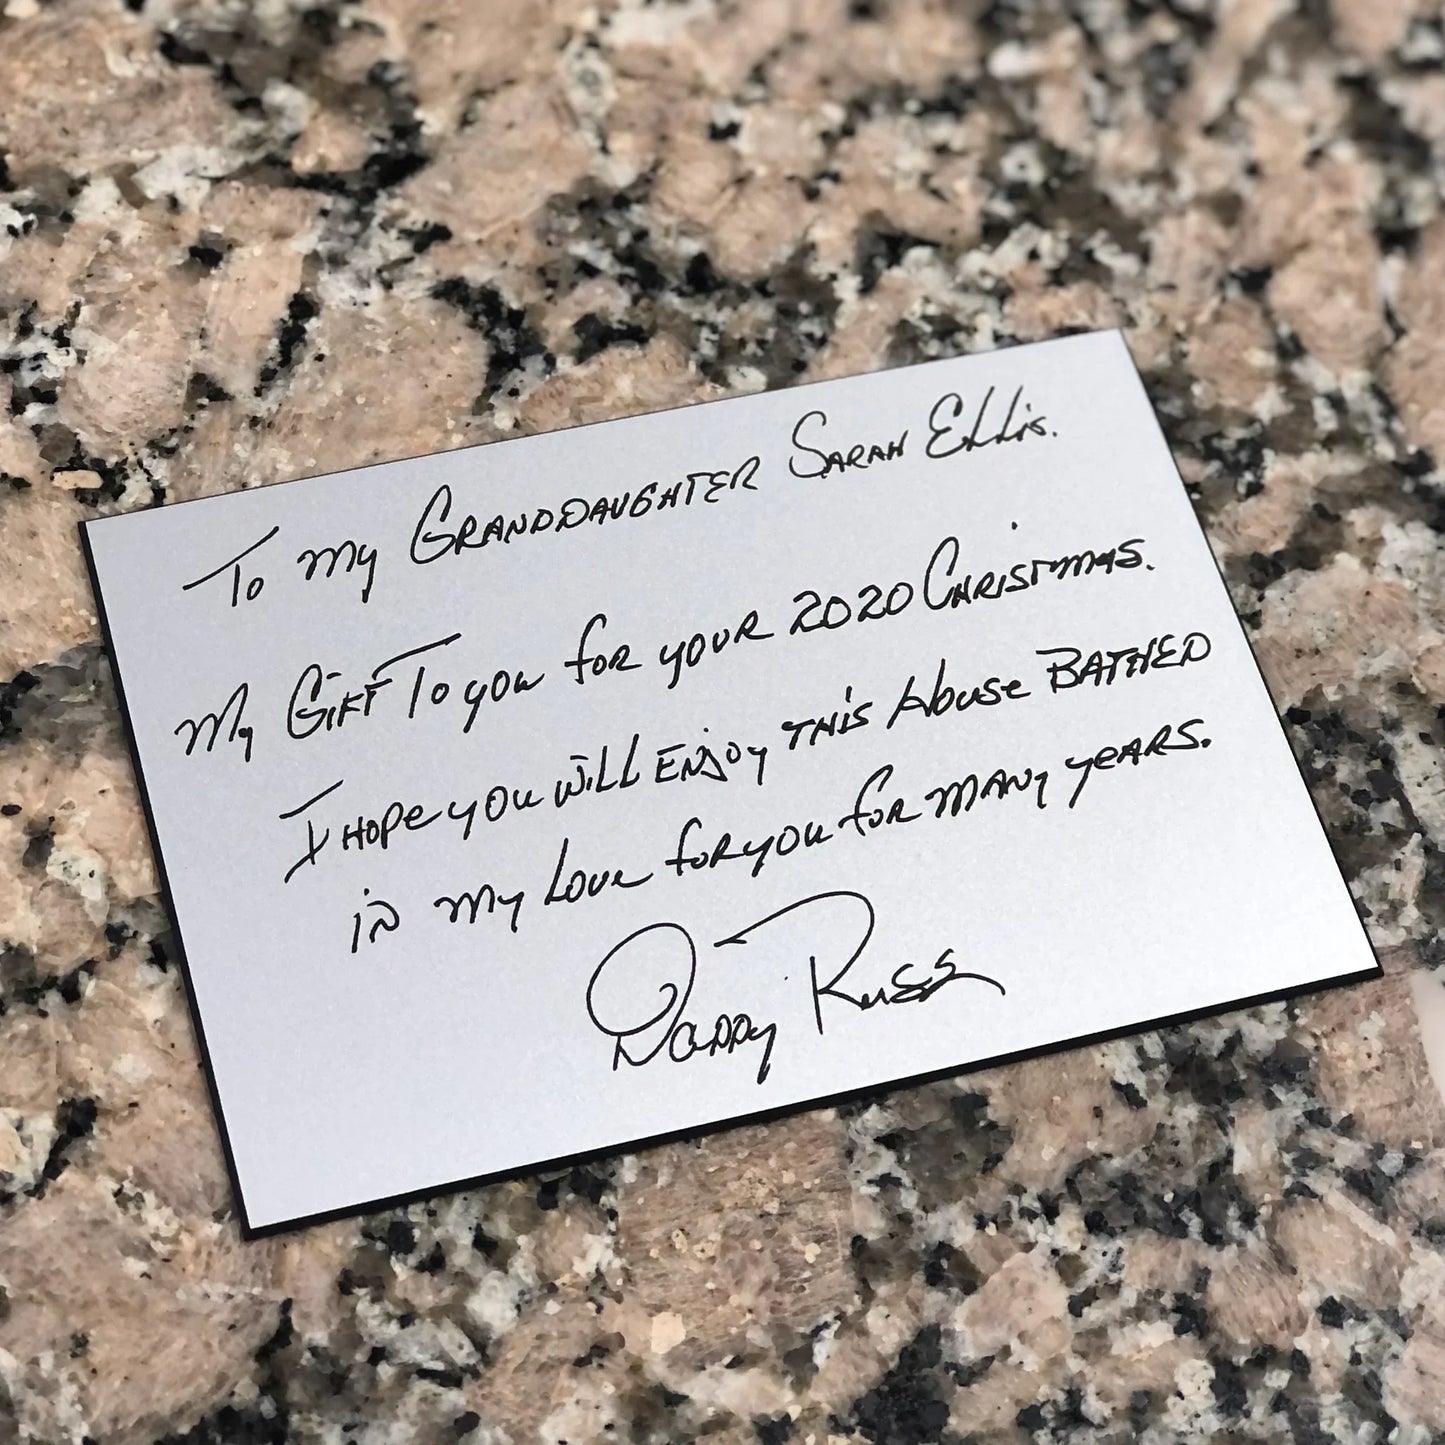 To my Granddaughter Sarah Ellis.
My Gift To you for your 2020 Christmas.
I hope you will Enjoy this House Bathed
in my Love for you for many years.
Daddy Russ